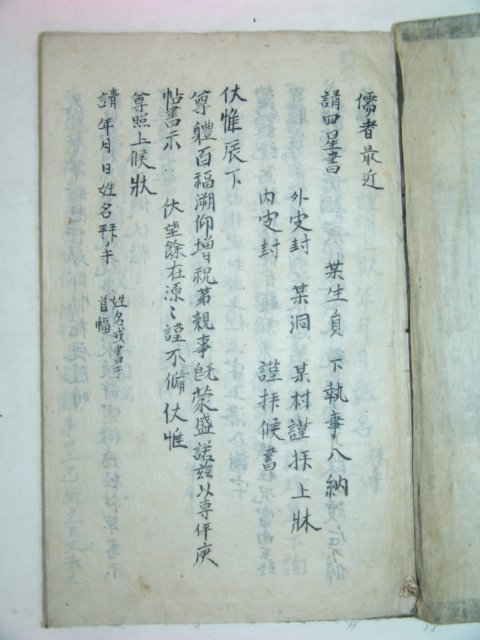 儒者最近
請四星書 某生員 下執事入納
外皮封 某洞 某村謹拝上狀
內皮封 謹拝候書
伏惟辰下
尊體百福溯仰增祝第親事旣蒙盛諾玆以專伻庚
帖書示 伏望餘在源々謹不備伏惟
尊照上候狀
請 年月日姓名拜手
姓名或書于
首幅